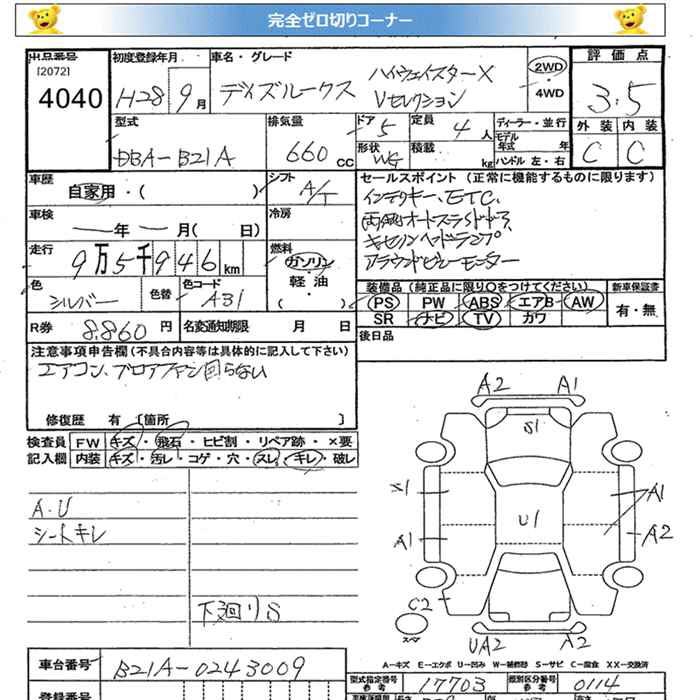 完全ゼロ切りコーナー
出品番号 初度登録年月 車名・グレード 評価点
[2072]
4040 H28年9月 デイズルークス ハイウェイスターX Vセレクション 2WD・4WD 3.5
型式 排気量 ドア 5 定員 4人 ディーラー・並行 外装 内装
DBA-B21A 660cc 形状 WG 積載 kg モデル年式 年 ハンドル 左・右 C C
車歴 自家用・( ) シフト A/T セールスポイント (正常に機能するものに限ります)
車検 ー年ー月( 日) 冷房 インテリキー、ETC、
両側オートスライドドア
走行 9万5千946km 燃料 ガソリン・軽・油・( ) キセノンヘッドランプ
アラウンドビューモニター
色 シルバー 色替 色コード A31 装備品 (純正品に限り○をつけてください) 新車保証書
PS PW ABS エアB AW 有・無
R券 8.860円 名変通知期限 月 日 SR ナビ TV カワ
注意事項申告欄 (不具合内容等は具体的に記入して下さい) 後日品
エアコン、ブロアファン回らない
修復歴 有 〔箇所 〕
検査員 FW キズ・飛石・ヒビ割・リペア跡・×要
記入欄 内装 キズ・汚レ・コゲ・穴・スレ・キレ・破レ
A.U
シートキレ
下廻りS
A2 A1
S1
S1 A1
U1
A1 A2
C2
スペア
UA2 A2
A-キズ E-エクボ U-凹み W-補修跡 S-サビ C-腐食 XX-交換済
車台番号 B21A-0243009 型式指定番号 参考 17703 類別区分番号 参考 0114
登録番号